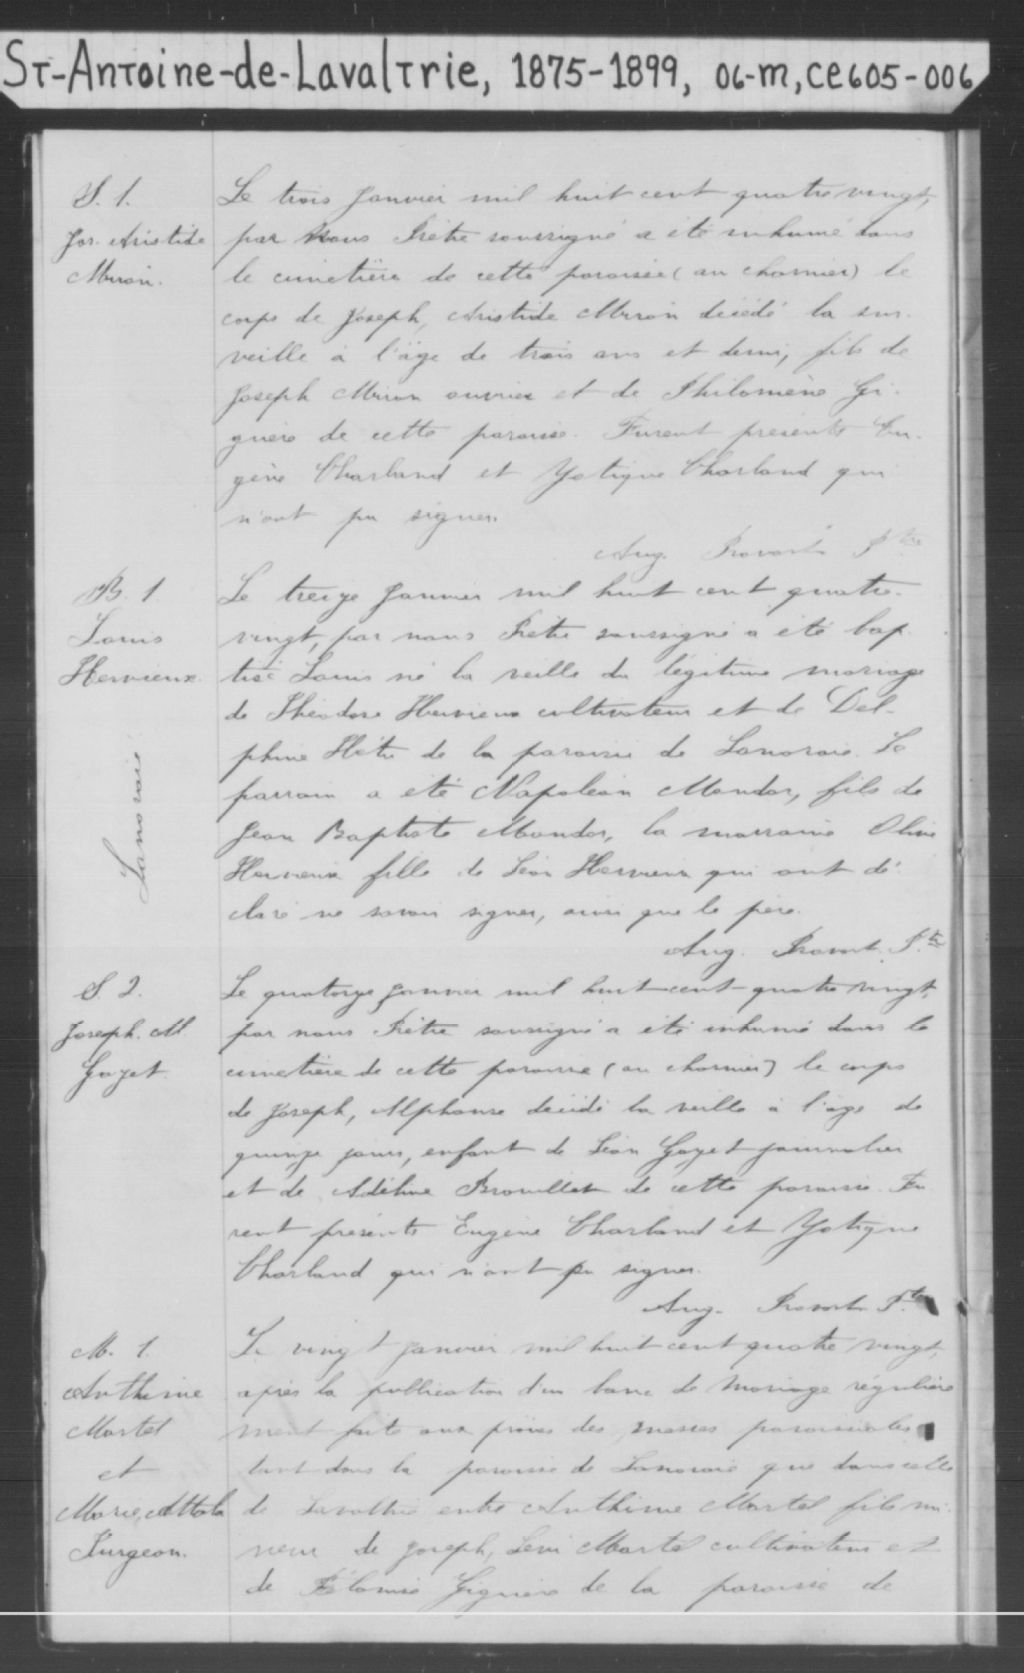 ST-Antoine-de-Lavaltrie, 1875-1899, 06-M, CE605-006
S. 1.
Jos. Aristide
Miron.
Le trois Janvier mil huit cent quatre vingt,
par Nous Prêtre soussigné a été inhumé dans
le cimetière de cette paroisse (au charnier) le
corps de Joseph, Aristide Miron décédé la sur-
veille à l'âge de trois ans et demi, fils de
Joseph Miron ouvrier et de Philomène Gi-
guère de cette paroisse. Furent présents Eu-
gène Charland et Yotique Charland qui
n'ont pu signer.
Aug. Provost Ptre
B. 1
Louis
Hervieux.
Lanoraie
Le treize Janvier mil huit cent quatre-
vingt, par nous Prêtre soussigné a été bap-
tisé Louis né la veille du légitime mariage
de Théodore Hervieux cultivateur et de Del-
phine Hétu de la paroisse de Lanoraie. Le
parrain a été Napoléon Mandor, fils de
Jean Baptiste Mandor, la marraine Olive
Hervieux fille de Léon Hervieux qui ont dé-
claré ne savoir signer, ainsi que le père.
Aug. Provost. Ptre
S. 2.
Joseph. Al
Goyet.
Le quatorze Janvier mil huit cent quatre vingt,
par nous Prêtre soussigné a été inhumé dans le
cimetière de cette paroisse (au charnier) le corps
de Joseph, Alphonse décédé la veille à l'age de
quinze jours, enfant de Léon Goyet journalier
et de Adéline Brouillet de cette paroisse. Fu
rent présents Eugène Charland et Yotique
Charland qui n'ont pu signer.
Aug. Provost Ptre
M. 1.
Anthime
Martel
et
Marie, Attala
Turgeon.
Le vingt janvier mil huit cent quatre vingt,
après la publication d'un banc de Mariage régulière
ment faite aux prônes des messes paroissiales
tant dans la paroisse de Lanoraie que dans celle
de Lavaltrie entre Anthime Martel fils mi-
neur de Joseph, Levi Martel cultivateur et
de Giguère de la paroisse de